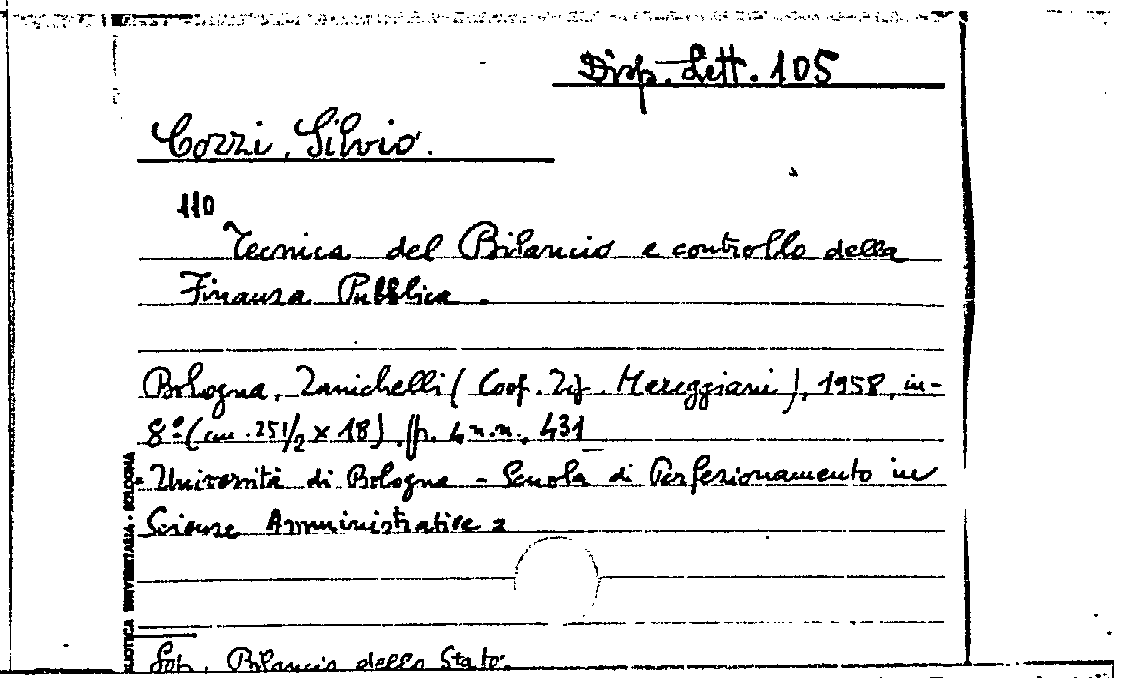 Disp. Lett. 105
Cozzi, Silvio.
110
Tecnica del Bilancio e controllo della
Finanza Pubblica.
Bologna, Zanichelli (Coop. Tip. Mareggiani), 1958, in-
8º (cm. 25 1/2 x 18). pp. 4 n.n., 431
= Università di Bologna - Scuola di Perfezionamento in
Scienze Amministrative =
BIBLIOTECA UNIVERSITARIA - BOLOGNA
Bilancio dello Stato.